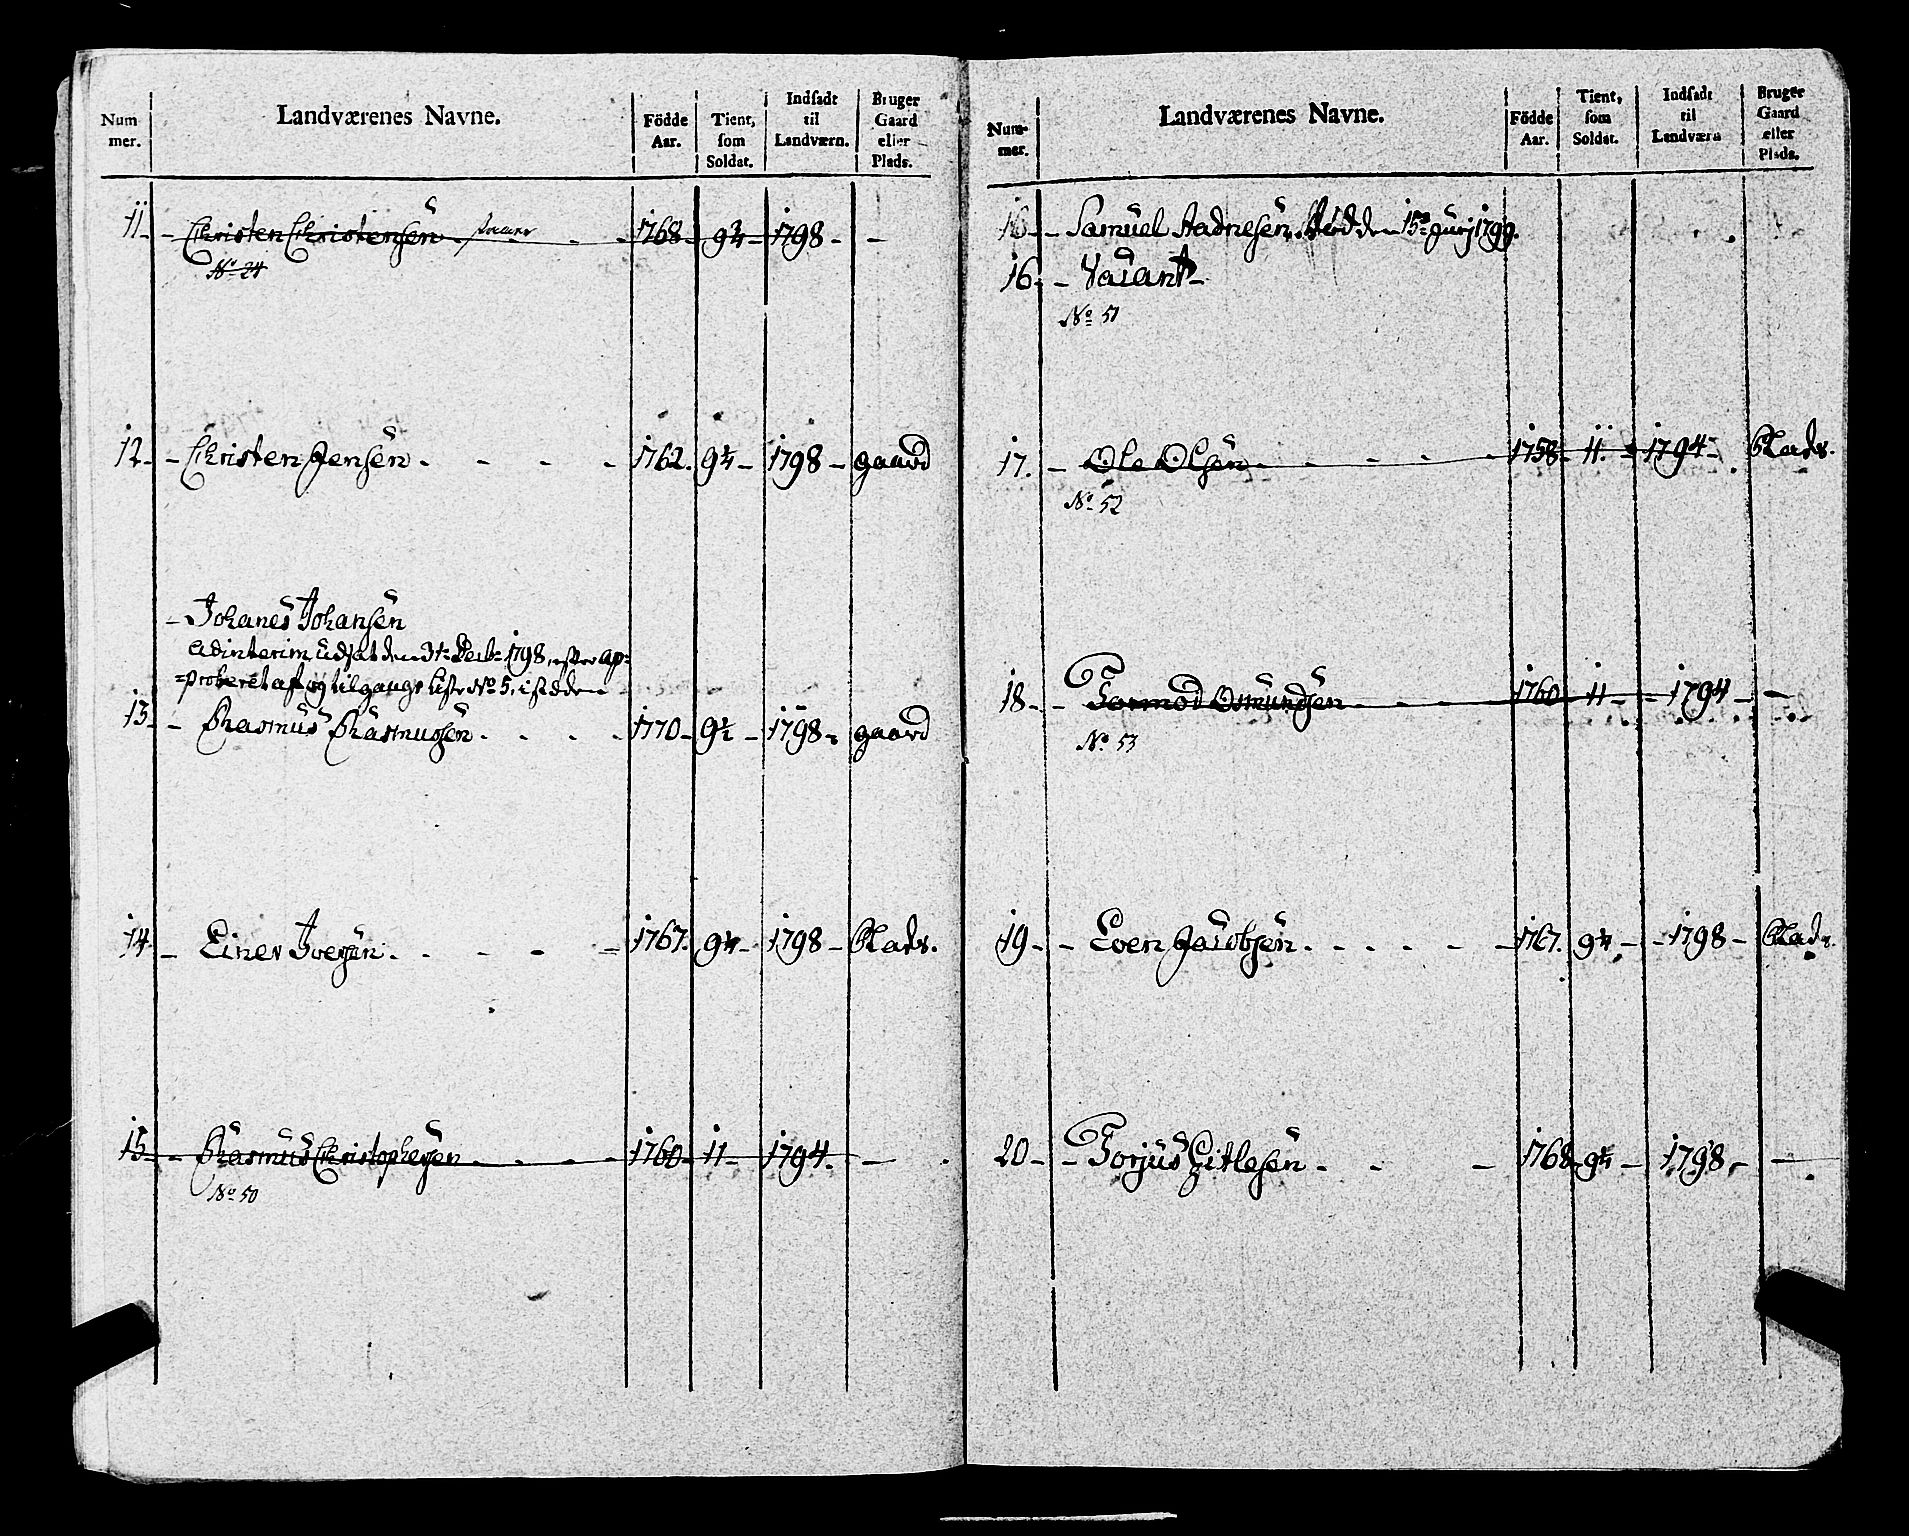 Num
mer.
Landværenes Navne.
Födde
Aar.
Tient,
som
Soldat.
Indsadt
til
Landværn.
Bruger
Gaard
eller
Plads.
11. - Christen Christensen - - - 1768 - 9¾ - 1798 - -
No 24
12. - Christen Jensen . - - - 1762. 9¼ - 1798 - gaard
- Johanes Johansen
adinterim udsat den 31te Decbr 1798, efter ap=
=proberet af og tilgangs Liste No 5, istæden
13. - Rasmus Rasmussen . - - - 1770 - 9½ - 1798 - gaard
14. - Einer Iversen . - - - 1767. 9¼ - 1798 - Plads.
15. - Rasmus Christophersen - - - 1760 - 11 - 1794. -
No 50
Num-
mer.
Landværenes Navne.
Födde
Aar.
Tient,
som
Soldat.
Indsadt
til
Landværn
Bruger
Gaard
eller
Plads.
16 - Samuel Aadnesen. Død den 15de Junj 1799.
16. - Vacant -
No 51
17. - Ole Olsen - - - - 1758 - 11. - 1794 - Plads.
No 52
18. - Tormod Osmundsen - - - 1760 - 11 - - 1794 - -
No 53
19 - - Even Jacobsen . - - - - 1767. 9¼ - - 1798 - Plads.
20 - - Torjus Gitlesen . - - 1768 - 9¼ - 1798 - -